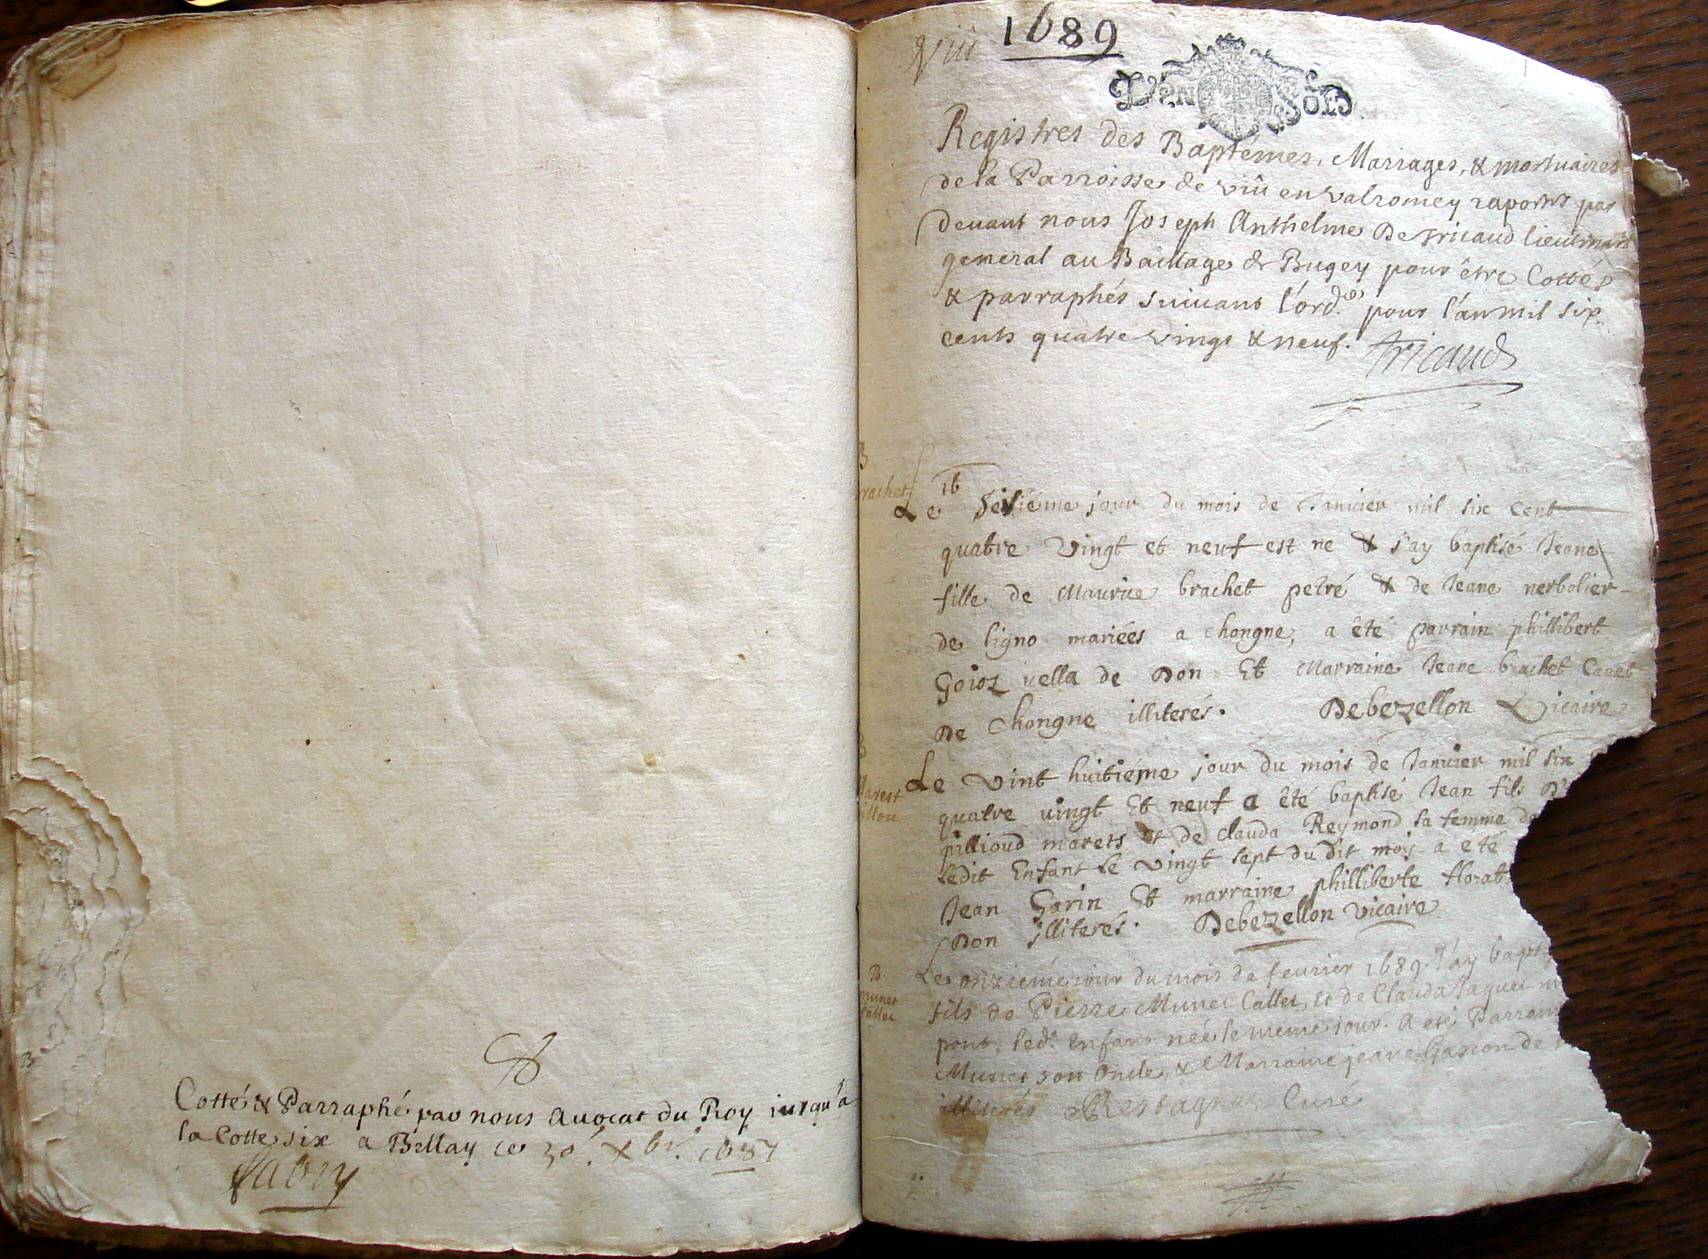 Cotté & Parraphé par nous Avocat du Roy jusqu'a
la Cotte six a Bellay ce 30e Xbre 1687
Fabry
Viii 1689
DeN SOLS
Registres des Baptémes, Mariages, & mortuaires
de la Parroisse de viû en valromey raportés par
devant nous Joseph Anthelme De Tricaud lieutenant
general au Bailliage de Bugey pour être Cottés
& parraphés suivant l'ord.ce pour l'an mil six
cents quatre vingt & neuf. Tricaud
B
brachet
16
Le seisiéme jour du mois de Janvier mil six Cent
quatre vingt et neuf est ne & j'ay baptisé Jeane
fille de Maurice brachet petré & de Jeane nerbolier
de ligno mariées a chongne, a été parrain phillibert
Goioz vella de Don Et Marraine Jeane brachet Cavet
De Chongne illiterés. Debezellon Vicaire
B
Marest
Le vint huitiéme jour du mois de Janvier mil six
quatre vingt Et neuf a été baptisé Jean fils
pillioud marets et de clauda Reymond sa femme de
ledit Enfant le vingt sept du dit mois a eté
Jean Gorin Et marraine philliberte florat
Don illiterés. Debezellon vicaire
B.
munet
Callet
Le onzieme jour du mois de fevrier 1689. J'ay bapt
fils de Pierre Munet Callet, et de Clauda Jaquet
pont, led.t Enfant née le meme jour. A eté Parrain
Munet son Oncle, & Marraine jeane Gascon de
illiterés Restagnac Curé